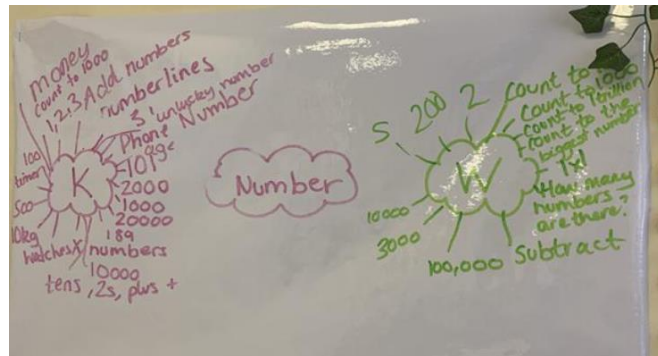 money
count to 1000
1,2,3 Add numbers
numberlines
3 unlucky number
Phone Number
age
101
2000
1000
20000
189
numbers
10000
tens, 2s, plus +
watches
10kg
500
timer
100
K
Number
W
5
200
2
count to
count to 1000
count to 1 trillion
count to the
biggest number
1x1
How many
numbers
are there?
Subtract
100,000
3000
10000